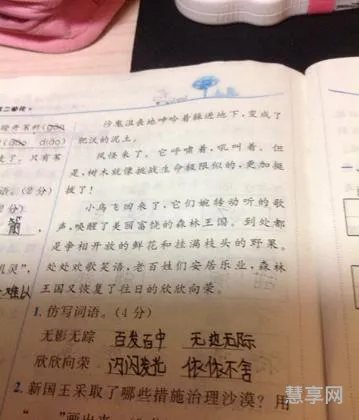 沙鬼沮丧地呻吟着藤进地下,变成了
肥沃的泥土。
风怪来了,它呼啸着,吼叫着。但
是,树木就像挑战生命极限似的,更加挺
拔了!
小鸟飞回来了,它们婉转动听的歌
声,唤醒了美丽富饶的森林王国。到处都
是争相开放的鲜花和挂满枝头的野果。
处处欢歌笑语,老百姓们安居乐业,森林
王国又恢复了往日的欣欣向荣。
1. 仿写词语。(4分)
无影无踪 百发百中 无边无际
欣欣向荣 闪闪发光 依依不舍
2. 新国王采取了哪些措施治理沙漠?用
画出来
(gāo
diāo)
了,只有茗
语。(2分)
分)
箭
机灵",
难以
慧享网